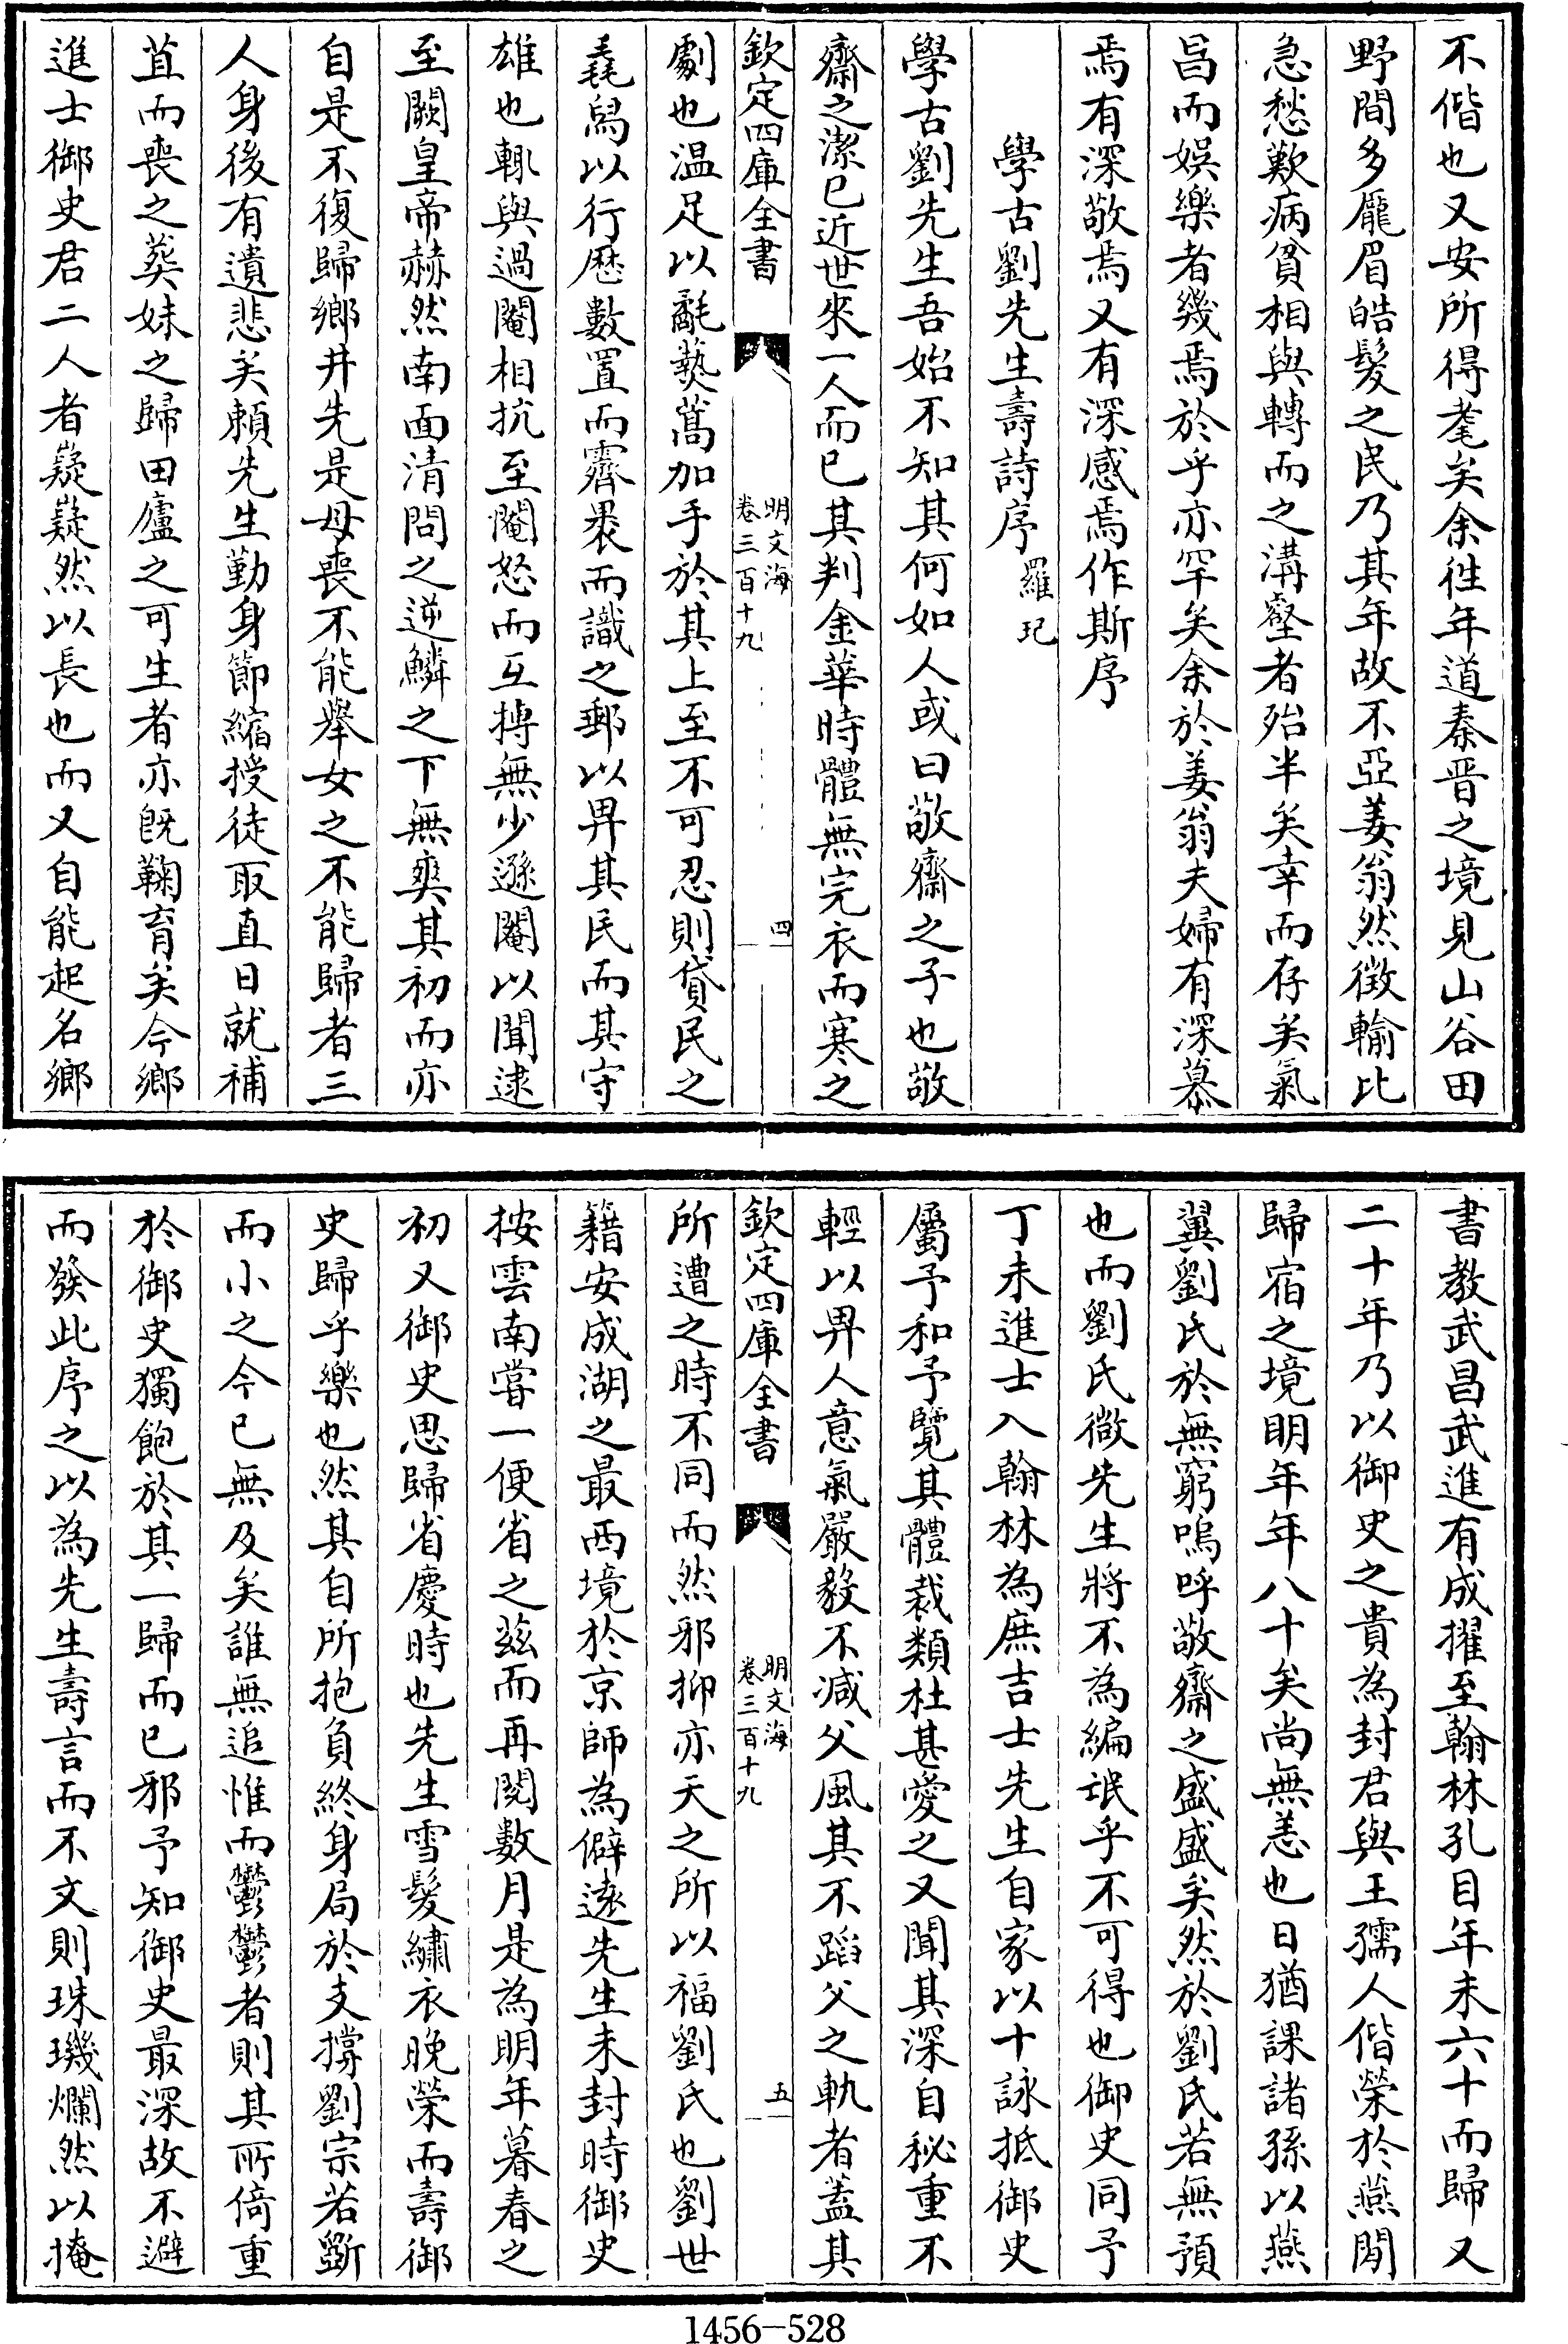 不偕也又安所得耄矣余徃年道秦晋之境見山谷田
野間多龐眉皓髮之民乃其年故不亞姜翁然徴輸比
急愁歎病貧相與轉而之溝壑者殆半矣幸而存矣氣
昌而娯樂者幾焉於乎亦罕矣余於姜翁夫婦有深慕
焉有深敬焉又有深感焉作斯序
學古劉先生壽詩序 羅玘
學古劉先生吾始不知其何如人或曰敬齋之子也敬
齋之潔已近世來一人而已其判金華時體無完衣而寒之
欽定四庫全書 明文海 卷三百十九 四
劇也温足以毳爇蒿加手於其上至不可忍則貸民之
毳舄以行歴數置而霽褁而識之郵以畀其民而其守
雄也輒與過閹相抗至閹怒而互摶無少遜閹以聞逮
至闕皇帝赫然南面清問之逆鱗之下無爽其初而亦
自是不復歸鄉井先是母喪不能舉女之不能歸者三
人身後有遺悲矣頼先生勤身節縮授徒取直日就補
苴而喪之葬妹之歸田廬之可生者亦旣鞠育矣今鄉
進士御史君二人者嶷嶷然以長也而又自能起名鄉
書教武昌武進有成擢至翰林孔目年未六十而歸又
二十年乃以御史之貴為封君與王孺人偕榮於燕閒
歸宿之境明年年八十矣尚無恙也日猶課諸孫以燕
翼劉氏於無窮嗚呼敬齋之盛盛矣然於劉氏若無預
也而劉氏微先生將不為編氓乎不可得也御史同予
丁未進士入翰林為庶吉士先生自家以十詠抵御史
屬予和予覽其體裁類杜甚愛之又聞其深自秘重不
輕以畀人意氣嚴毅不减父風其不蹈父之軌者蓋其
欽定四庫全書 明文海 卷三百十九 五
所遭之時不同而然邪抑亦天之所以福劉氏也劉世
籍安成湖之最西境於京師為僻逺先生未封時御史
按雲南嘗一便省之兹而再閲數月是為明年暮春之
初又御史思歸省慶時也先生雪髮繡衣晚榮而壽御
史歸乎樂也然其自所抱負終身局於支撐劉宗若斵
而小之今已無及矣誰無追惟而鬱鬱者則其所倚重
於御史獨飽於其一歸而已邪予知御史最深故不避
而發此序之以為先生壽言而不文則珠璣爛然以掩
1456-528